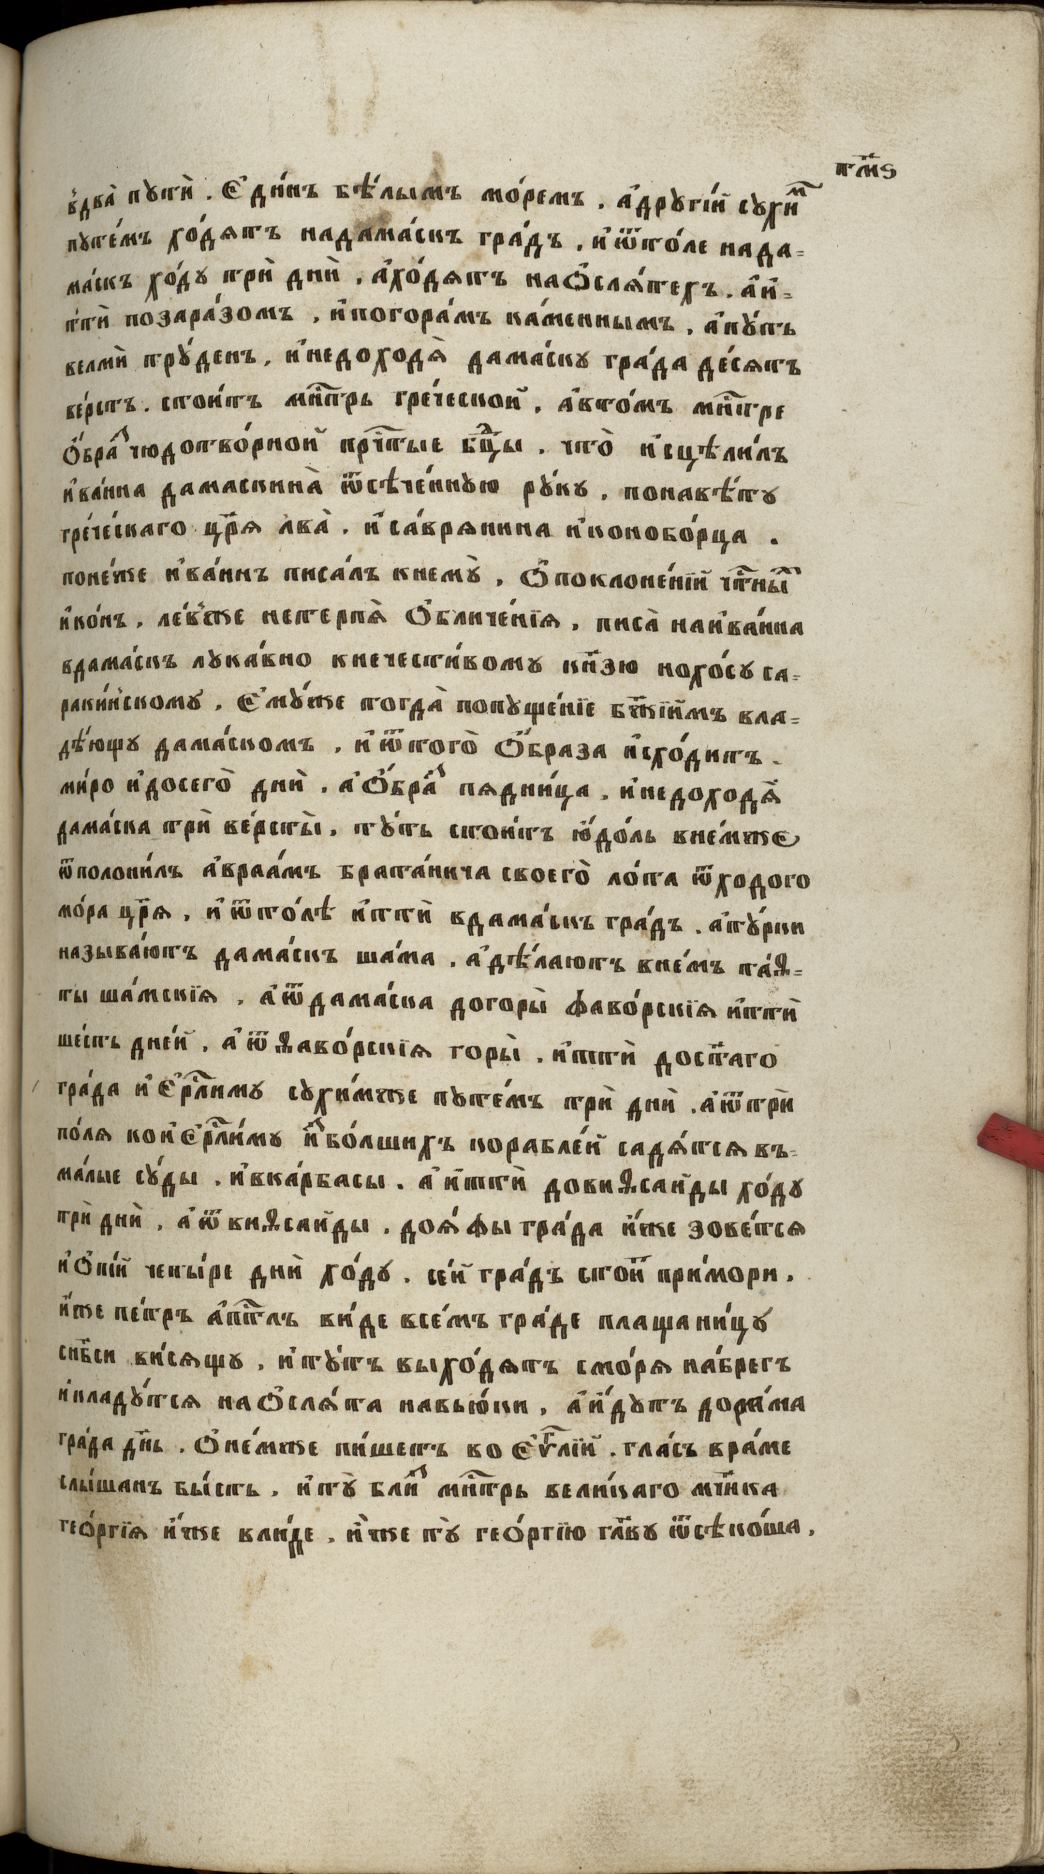 тм҃ѕ
в̾два̀ пꙋтѝ . Є҆ди́нъ бѣ́лымъ мо́ремъ . а҆дрꙋгі́й сꙋхи́ⷨ
пꙋте́мъ хо́дятъ надама́скъ гра́дъ . и҆ѿто́ле нада=
ма́скъ хо́дꙋ трѝ днѝ . а҆хо́дятъ наѻ҆сля́техъ . а҆и=
ттѝ позара́зомъ . и҆погора́мъ ка́меннымъ . а҆пꙋ́ть
велмѝ трꙋ́денъ . и҆недоходѧ̀ дама́скꙋ гра́да де́сять
ве́рстъ . стои́тъ мн҃трь гре́ческой . а҆вто́мъ мн҃тре
ѻ҆́браⷥ чюдотво́рной прⷭ҇тые бцⷣы . что̀ и҆сцѣли́лъ
и҆ва́нна дамаскина̀ ѿсѣче́ннꙋю рꙋ́кꙋ . понавѣ́тꙋ
гре́ческаго цр҃я лва̀ . и҆са́врянина и҆конобо́рца .
поне́же и҆ва́ннъ писа́лъ кнемꙋ̀ . ѻ҆поклоне́нїй чⷭ҇тны́ⷯ
и҆ко́нъ . ле́в̾же нетерпѧ̀ ѻ҆бличе́нїя . писа̀ наи҆ва́нна
вдама́скъ лꙋка́вно кнечести́вомꙋ кн҃зю нохо́сꙋ са=
раки́н̾скомꙋ . Є҆мꙋ́же тогда̀ попꙋще́нїе бж҃їимъ вла=
дѣ́ющꙋ дама́скомъ . и҆ѿтого̀ ѻ҆́браза и҆схо́дитъ .
ми́ро и҆досего̀ днѝ . а҆ѻ҆́браⷥ пядни́ца . и҆недоходѧ̀
дама́ска трѝ ве́рсты̀ . тꙋ́ть стои́тъ ю҆до́ль вне́мже
ѿполони́лъ а҆враа́мъ брата́нича своего̀ ло́та ѿходого
мо́ра цр҃я . и҆ѿто́лѣ и҆ттѝ вдама́скъ гра́дъ . а҆тꙋ́рки
называ́ютъ дама́скъ ша́ма . а҆дѣ́лаютъ вне́мъ таѳ=
ты ша́мскїя . а҆ѿдама́ска догоры̀ фаво́рскїя и҆ттѝ
ше́сть дне́й . а҆ѿѳаво́рскїя горы̀ . и҆ттѝ дост҃аго
гра́да и҆Єрⷭ҇лимꙋ сꙋхи́мже пꙋте́мъ трѝ днѝ . а҆ѿтрѝ
по́ля кои҆Єрⷭ҇ли́мꙋ и҆ⷥбо́лшихъ корабле́й садя́тся въ=
ма́лые сꙋ́ды . и҆вка́рбасы . а҆и҆ттѝ довиѳсаи́ды хо́дꙋ
трѝ днѝ . а҆ѿвиѳсаи́ды . доя́фы гра́да и҆́же зове́тся
и҆ѻ҆пі́й четы́ре днѝ хо́дꙋ . се́й гра́дъ стои́ⷮ при́мори .
и҆́же пе́тръ а҆пⷭ҇тлъ ви́де всемъ гра́де плащани́цꙋ
снб҃си ви́сящꙋ . и҆тꙋ́тъ выхо́дятъ смо́ря на́брегъ
и҆кладꙋ́тся наѻ҆сля́та навью́ки . а҆и҆́дꙋтъ дора́ма
гра́да дн҃ь . ѻ҆не́мже пи́шетъ во Єѵⷢ҇лїй . гла́съ вра́ме
слы́шанъ бы́сть . и҆тꙋ̀ бли́ⷥ мн҃трь вели́каго мч҃нка
гео́ргїя и҆́же вли́де . и҆́же тꙋ̀ гео́ргїю гл҃вꙋ ѿсѣко́ша .